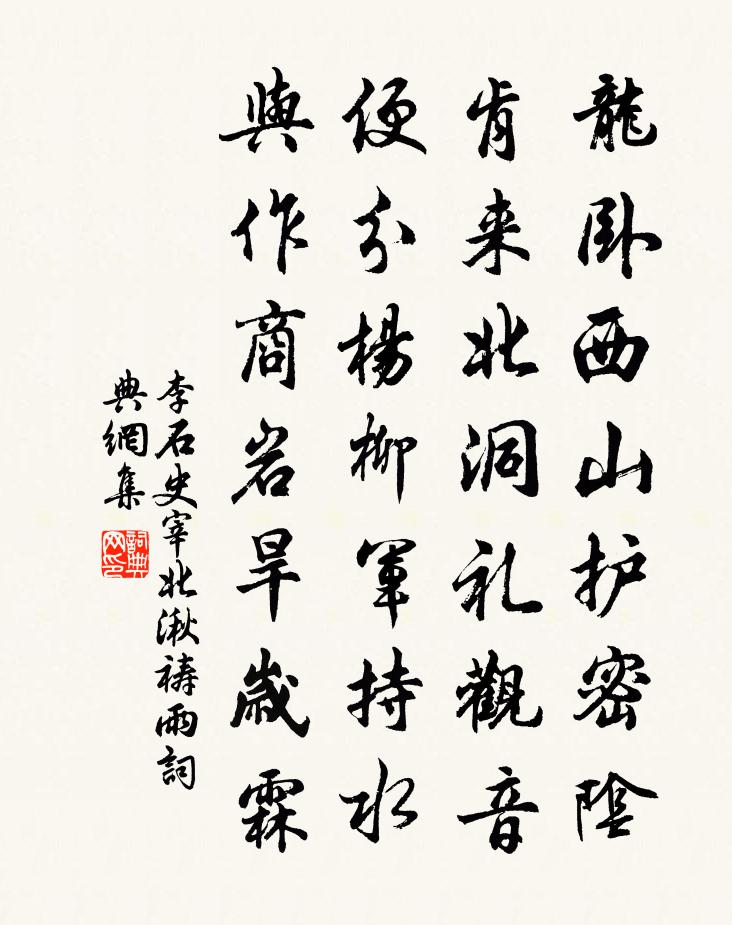 龍卧西山护密陰
肯来北洞礼觀音
便分楊柳軍持水
與作商岩旱歲霖
李石史宰北湫禱雨詞
典網集
詞典网印